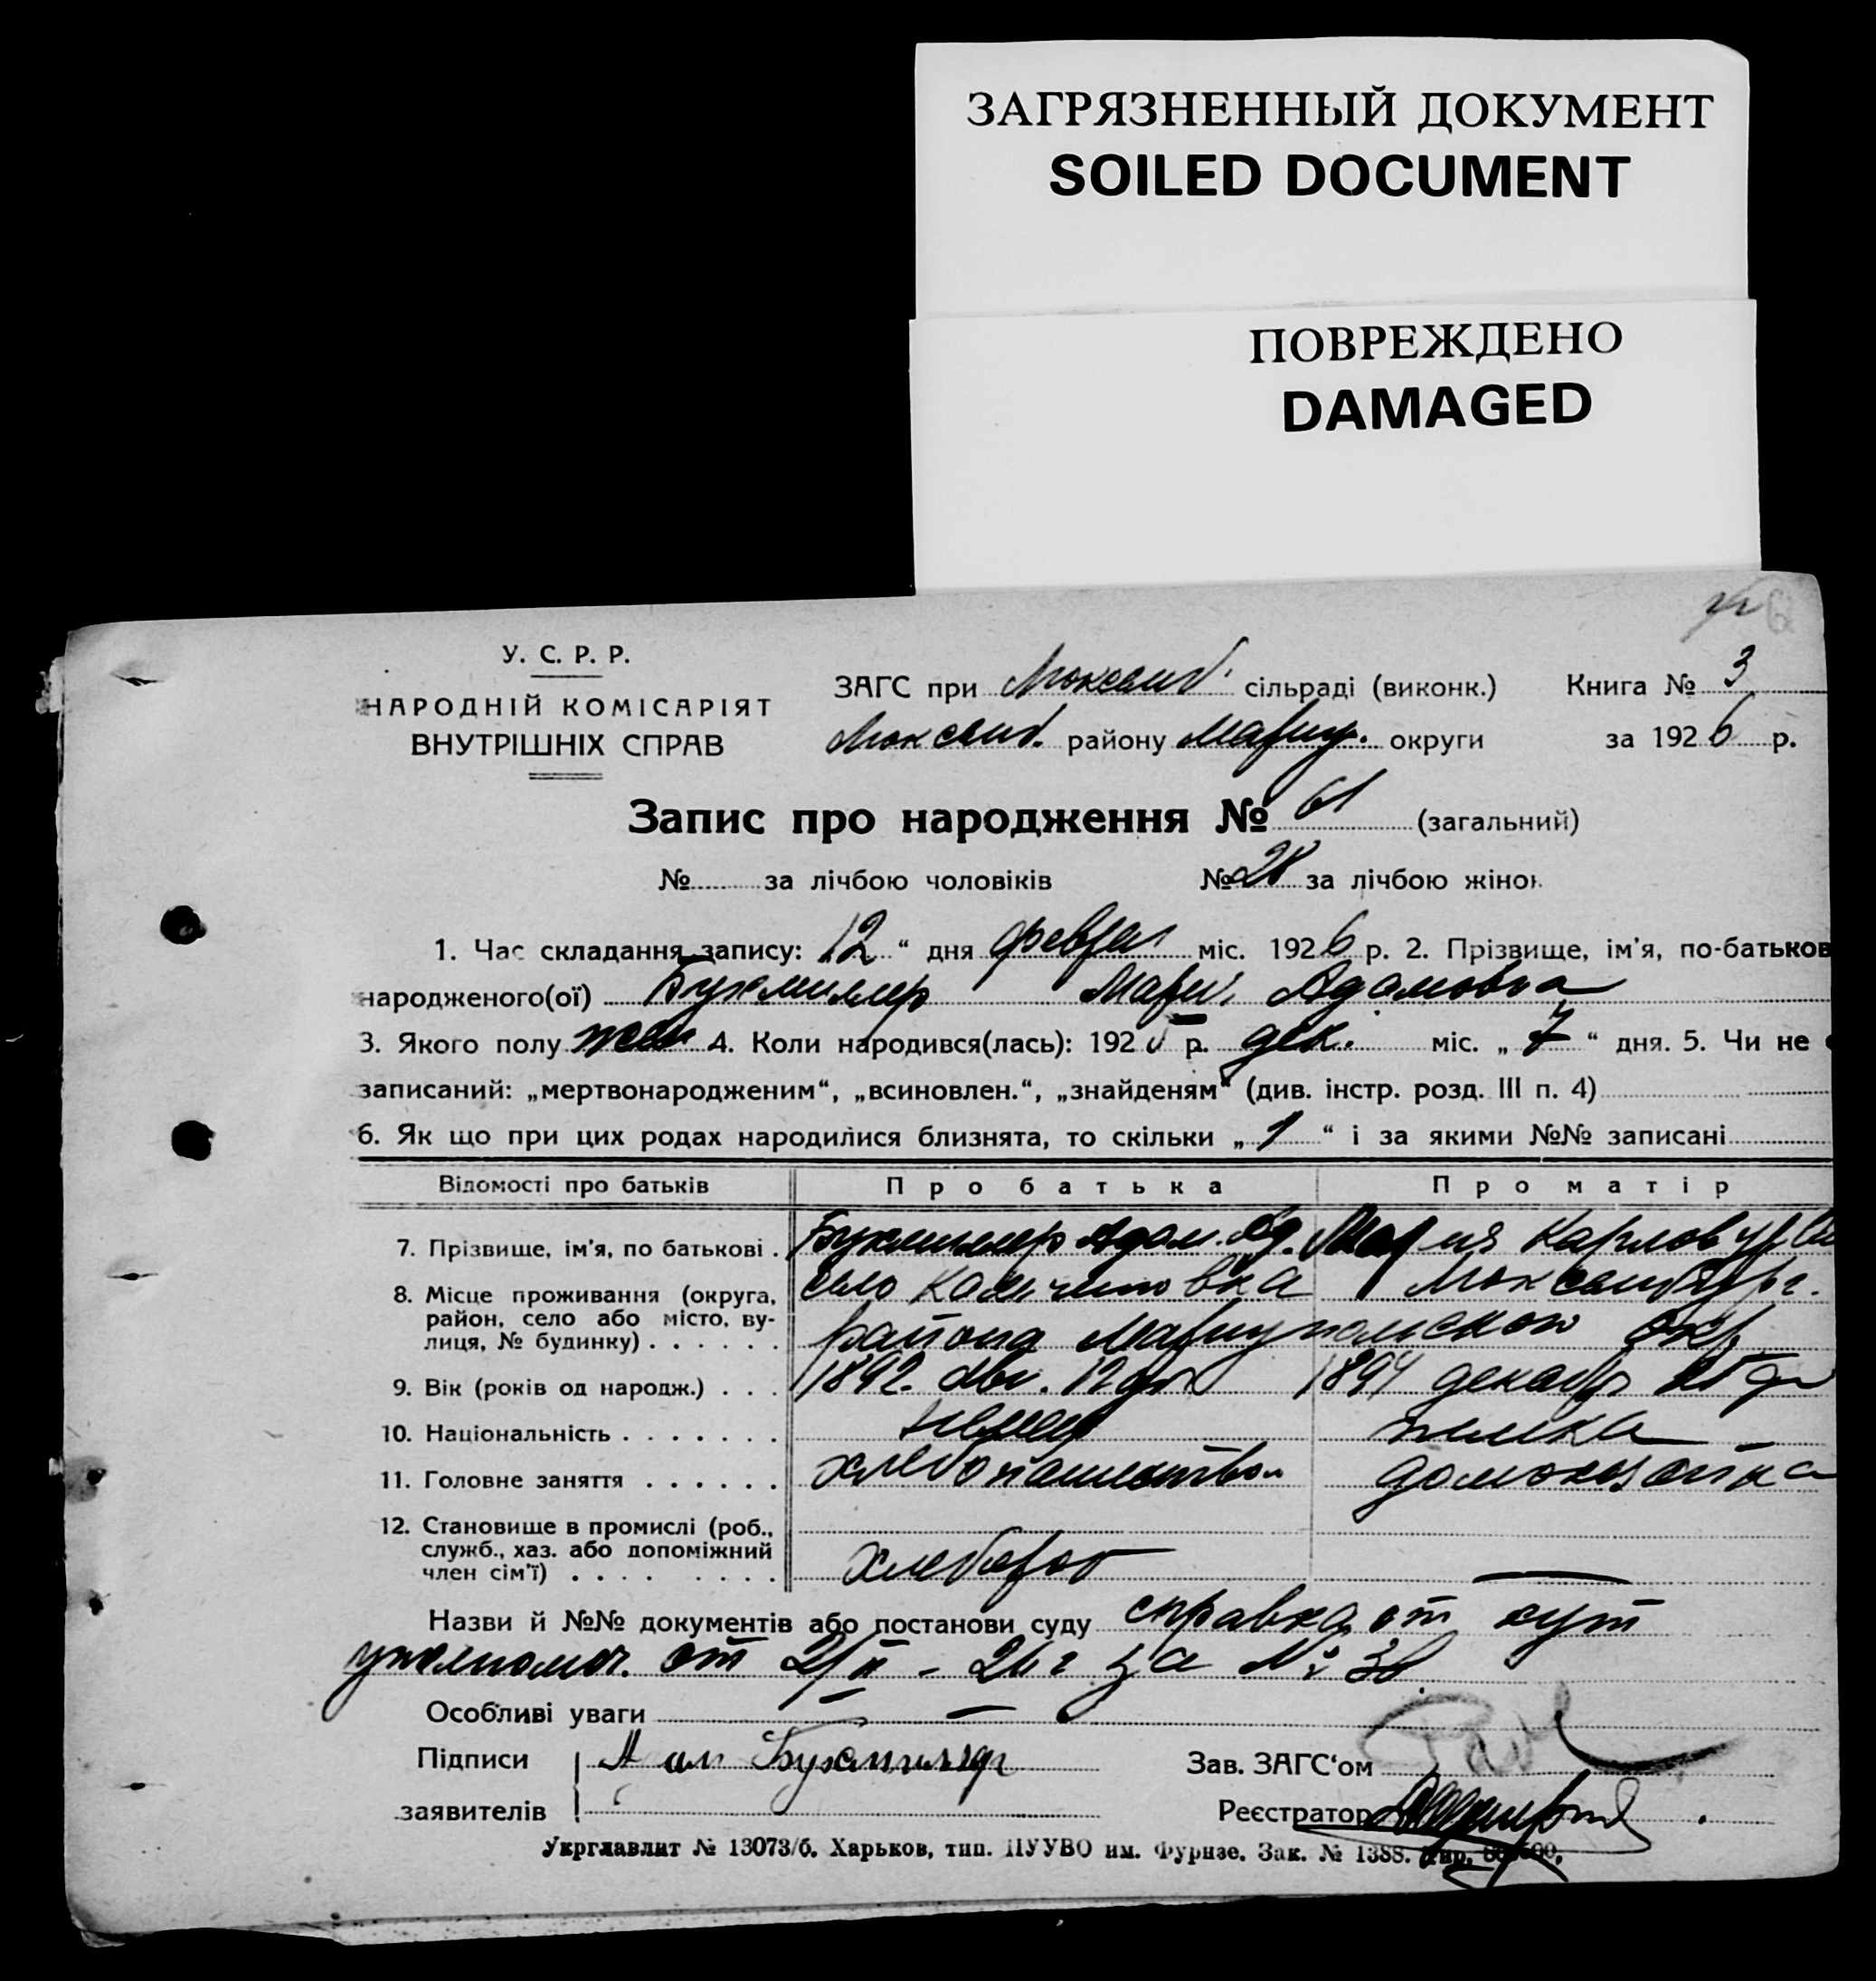 ЗАГРЯЗНЕННЫЙ ДОКУМЕНТ
SOILED DOCUMENT
ПОВРЕЖДЕНО
DAMAGED
У. С. Р. Р.
НАРОДНІЙ КОМІСАРІЯТ
ВНУТРІШНІХ СПРАВ
ЗАГС при сільраді (виконк.) Книга № 3
району Мариу. округи за 1926 р.
Запис про народження № 61 (загальний)
№ за лічбою чоловіків № 28 за лічбою жінок
1. Час складання запису: 12 “ дня феврал міс. 1926 р. 2. Прізвище, ім'я, по-батьков
народженого(ої) Бухмиллер Мария Адамовна
3. Якого полу жен 4. Коли народився(лась): 1925 р. дек. міс. „ 7 “ дня. 5. Чи не
записаний: „мертвонародженим“, „всиновлен.“, „знайденям“ (див. інстр. розд. III п. 4)
6. Як що при цих родах народилися близнята, то скільки „ 1 “ і за якими №№ записані
Відомості про батьків Про батька Про матір
7. Прізвище, ім'я, по батькові . Бухмиллер Адам. Ад. Мария Карлов
8. Місце проживання (округа, район, село або місто, вулиця, № будинку) . . . . . . село
района Мариупольской окр.
9. Вік (років од народж.) . . . 1892. 12 дня 1894 декабр
10. Національність . . . . . . . немец немка
11. Головне заняття . . . . . . хлебопашество домохозяйка
12. Становище в промислі (роб., служб., хаз. або допоміжний член сім'ї) . . . . . . . . хлебороб —
Назви й №№ документів або постанови суду справка от
уполномоч. от 2/II - 26 г за № 38
Особливі уваги — —
Підписи Бухмиллер Зав. ЗАГС'ом
заявителів Реєстратор
Укрглавлит № 13073/б. Харьков, тип. ПУУВО им. Фурнзе. Зак. № 1388.